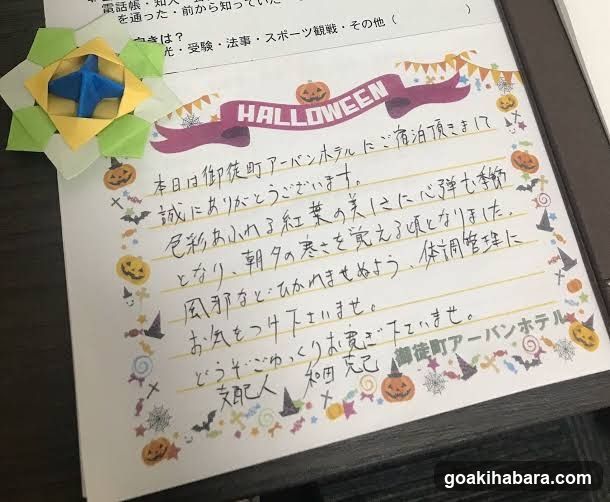 電話帳・知人
を通った・前から知っていた
向きは？
光・受験・法事・スポーツ観戦・その他（　　　）
HALLOWEEN
本日は御徒町アーバンホテルにご宿泊頂きまして
誠にありがとうございます。
色彩あふれる紅葉の美しさに心弾む季節
となり、朝夕の寒さを覚える頃となりました。
風邪などひかれませぬよう、体調管理に
お気をつけ下さいませ。
どうぞごゆっくりお寛ぎ下さいませ。
支配人 和田 克己
御徒町アーバンホテル
goakihabara.com